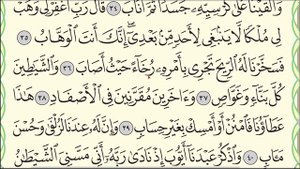 وَأَلْقَيْنَا عَلَىٰ كُرْسِيِّهِۦ جَسَدًا ثُمَّ أَنَابَ ٣٤ قَالَ رَبِّ ٱغْفِرْ لِى وَهَبْ
لِى مُلْكًا لَّا يَنۢبَغِى لِأَحَدٍ مِّنۢ بَعْدِىٓ إِنَّكَ أَنتَ ٱلْوَهَّابُ ٣٥
فَسَخَّرْنَا لَهُ ٱلرِّيحَ تَجْرِى بِأَمْرِهِۦ رُخَآءً حَيْثُ أَصَابَ ٣٦ وَٱلشَّيَٰطِينَ
كُلَّ بَنَّآءٍ وَغَوَّاصٍ ٣٧ وَءَاخَرِينَ مُقَرَّنِينَ فِى ٱلْأَصْفَادِ ٣٨ هَٰذَا
عَطَآؤُنَا فَٱمْنُنْ أَوْ أَمْسِكْ بِغَيْرِ حِسَابٍ ٣٩ وَإِنَّ لَهُۥ عِندَنَا لَزُلْفَىٰ وَحُسْنَ
مَـَٔابٍ ٤٠ وَٱذْكُرْ عَبْدَنَآ أَيُّوبَ إِذْ نَادَىٰ رَبَّهُۥٓ أَنِّى مَسَّنِىَ ٱلشَّيْطَٰنُ